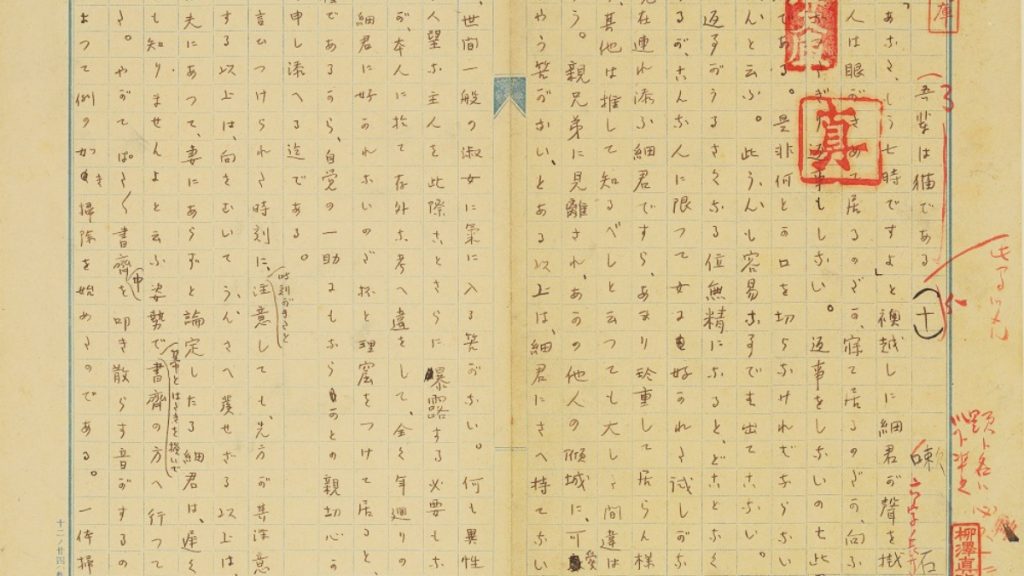 吾輩は猫である
(十)
漱石
「あなた、もう七時ですよ」と襖越しに細君が聲を掛
人は眼がさめて居るのだか、寐て居るのだか、向ふ
ぎり返事もしない。返事をしないのは此
である。是非何とか口を切らなければならない
んと云ふ。此うんも容易な事では出てこない。
返事がうるさくなる位無精になると、どことなく
るが、こんな人に限つて女に好かれた試しがな
現在連れ添ふ細君ですら、あまり珍重して居らん様
、其他は推して知るべしと云つても大した間違は
う。親兄弟に見離され、あかの他人の傾城に、可愛
やう筈がない、とある以上は、細君にさへ持てない
世間一般の淑女に氣に入る筈がない。何も異性
人望な主人を此際ことさらに暴露する必要もな
が、本人に於て存外な考へ違をして、全く年廻り
細君に好かれないのだ抔と理窟をつけて居ると、
であるから、自覚の一助にもならうかとの親切心
申し添へる迄である。
言ひつけられた時刻に、時刻がきたと注意しても、先方が其注意
する以上は、向をむいてうんさへ發せざる以上は、
夫にあつて、妻にあらずと論定したる細君は、遅く
も知りませんよと云ふ姿勢で箒とはたきを擔いで書齋の方へ行つて
た。やがてぱた〱書齋中を叩き散らす音がするの
よつて例の如き掃除を始めたのである。一体掃
真